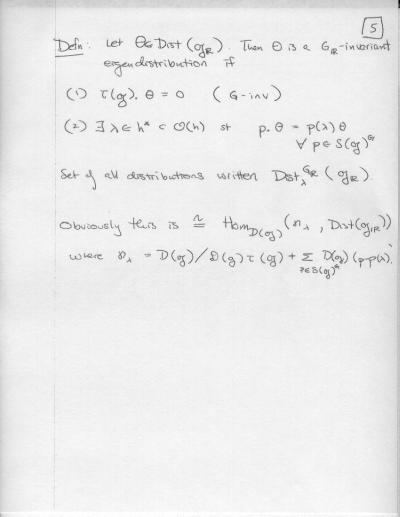 5
Defn: Let Θ∈Dist(𝔤_ℝ). Then Θ is a G_ℝ-invariant
eigendistribution if
(1) τ(𝔤).Θ = 0 (G-inv)
(2) ∃ λ ∈ h* ⊂ O(h) st p.Θ = p(λ)Θ
∀ p∈S(𝔤)^G
Set of all distributions written Dist_λ^{G_ℝ}(𝔤_ℝ).
Obviously this is ≅ Hom_{D(𝔤)}(𝔫_λ, Dist(𝔤_ℝ))
where 𝔫_λ = D(𝔤)/D(𝔤)τ(𝔤) + Σ_{p∈S(𝔤)^G} D(𝔤)(p-p(λ)).